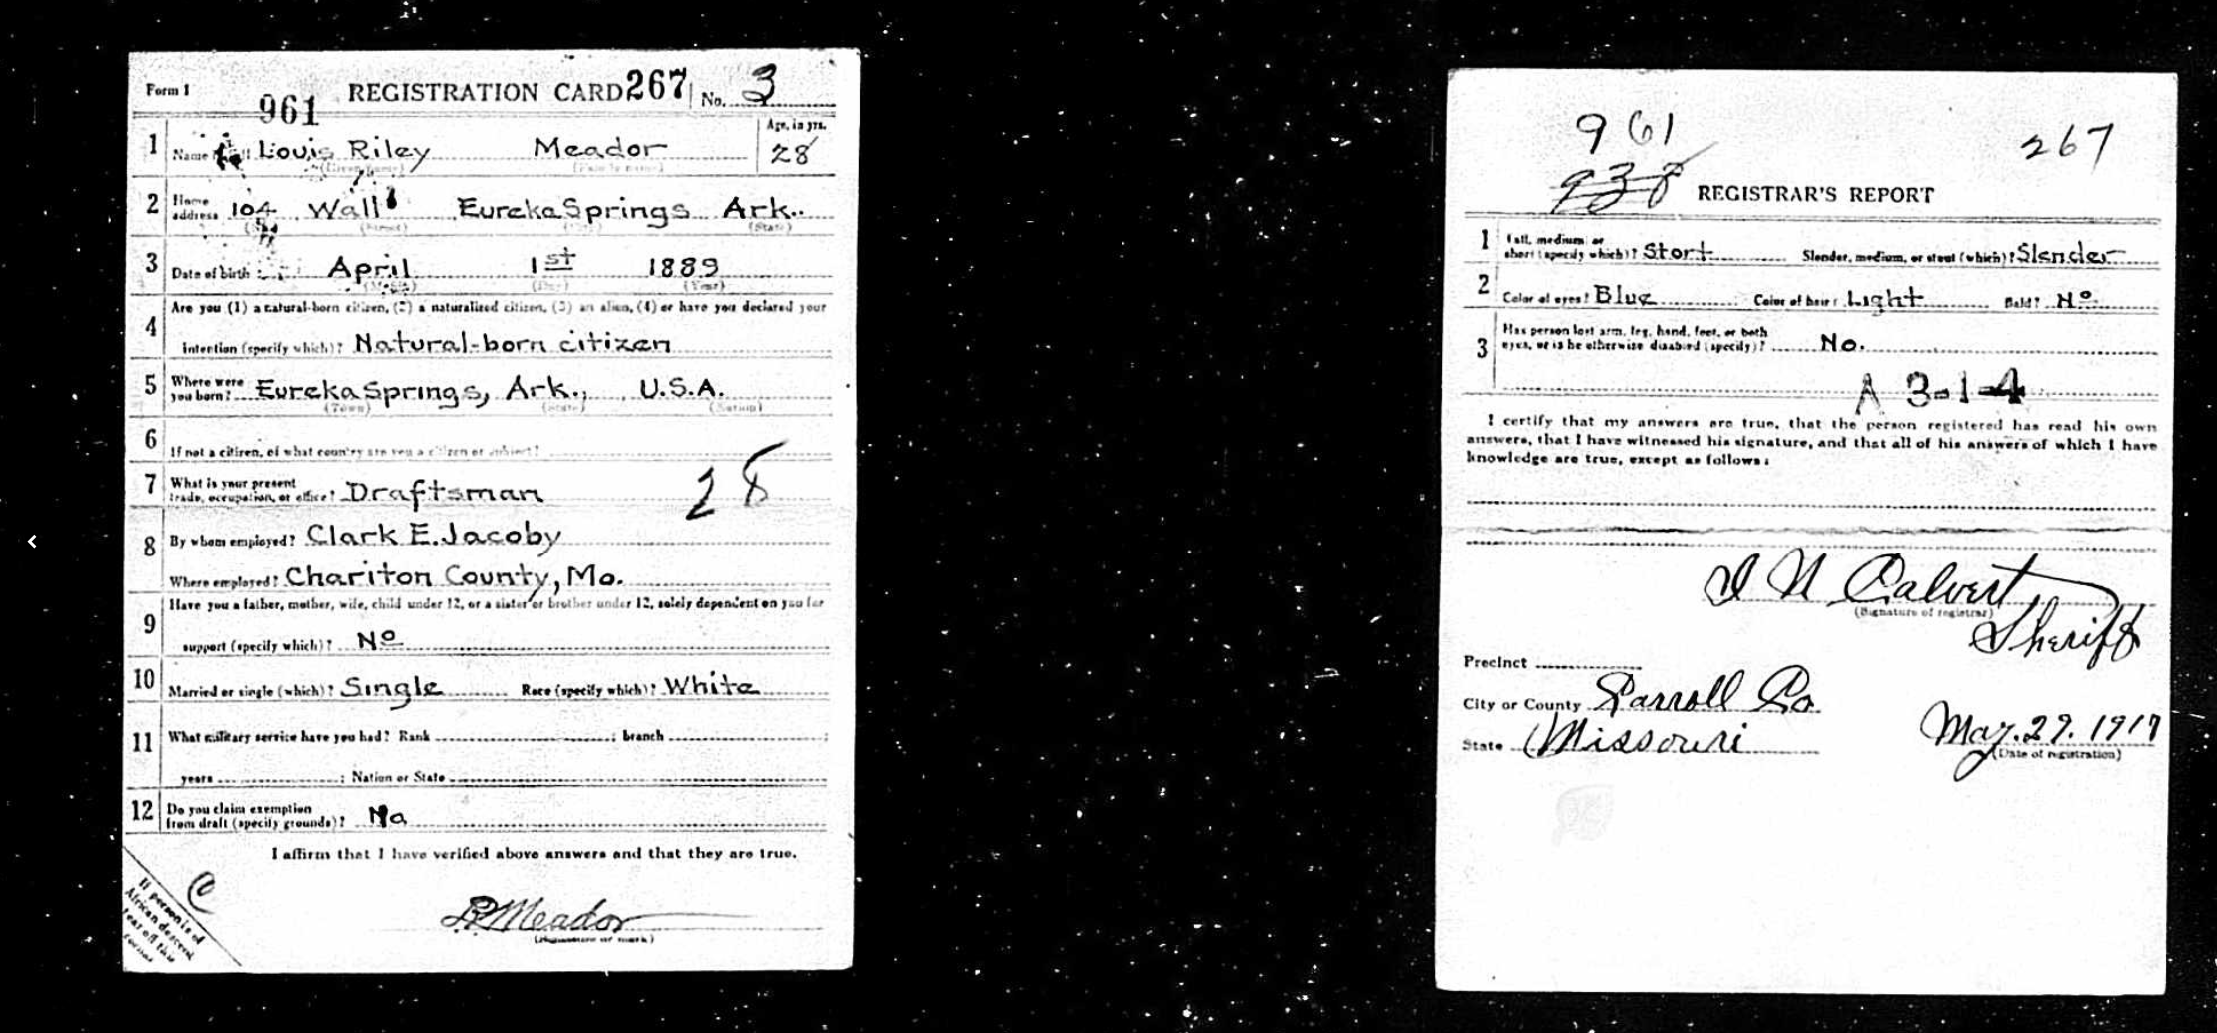 Form 1 961 REGISTRATION CARD 267 No. 3
1 Name Louis Riley Meador Age, in yrs. 28
(Given name) (Family name)
2 Home address 104 Wall Eureka Springs Ark.
(No.) (Street) (City) (State)
3 Date of birth April 1st 1889
(Month) (Day) (Year)
4 Are you (1) a natural-born citizen, (2) a naturalized citizen, (3) an alien, (4) or have you declared your
intention (specify which)? Natural-born citizen
5 Where were you born? Eureka Springs, Ark., U.S.A.
(Town) (State) (Nation)
6 If not a citizen, of what country are you a citizen or subject?
7 What is your present trade, occupation, or office? Draftsman 28
8 By whom employed? Clark E. Jacoby
Where employed? Chariton County, Mo.
9 Have you a father, mother, wife, child under 12, or a sister or brother under 12, solely dependent on you for
support (specify which)? No
10 Married or single (which)? Single Race (specify which)? White
11 What military service have you had? Rank ; branch ;
years ; Nation or State
12 Do you claim exemption from draft (specify grounds)? No
I affirm that I have verified above answers and that they are true.
Meador
(Signature or mark)
If person is of
African descent
tear off this
corner
961 267
938 REGISTRAR'S REPORT
1 Tall, medium, or short (specify which)? Stort Slender, medium, or stout (which)? Slender
2 Color of eyes? Blue Color of hair? Light Bald? No.
3 Has person lost arm, leg, hand, feet, or both
eyes, or is he otherwise disabled (specify)? No.
A 3-1-4
I certify that my answers are true, that the person registered has read his own
answers, that I have witnessed his signature, and that all of his answers of which I have
knowledge are true, except as follows:
Calvert
(Signature of registrar)
Sheriff
Precinct
City or County Carroll Co
State Missouri May. 29. 1917
(Date of registration)